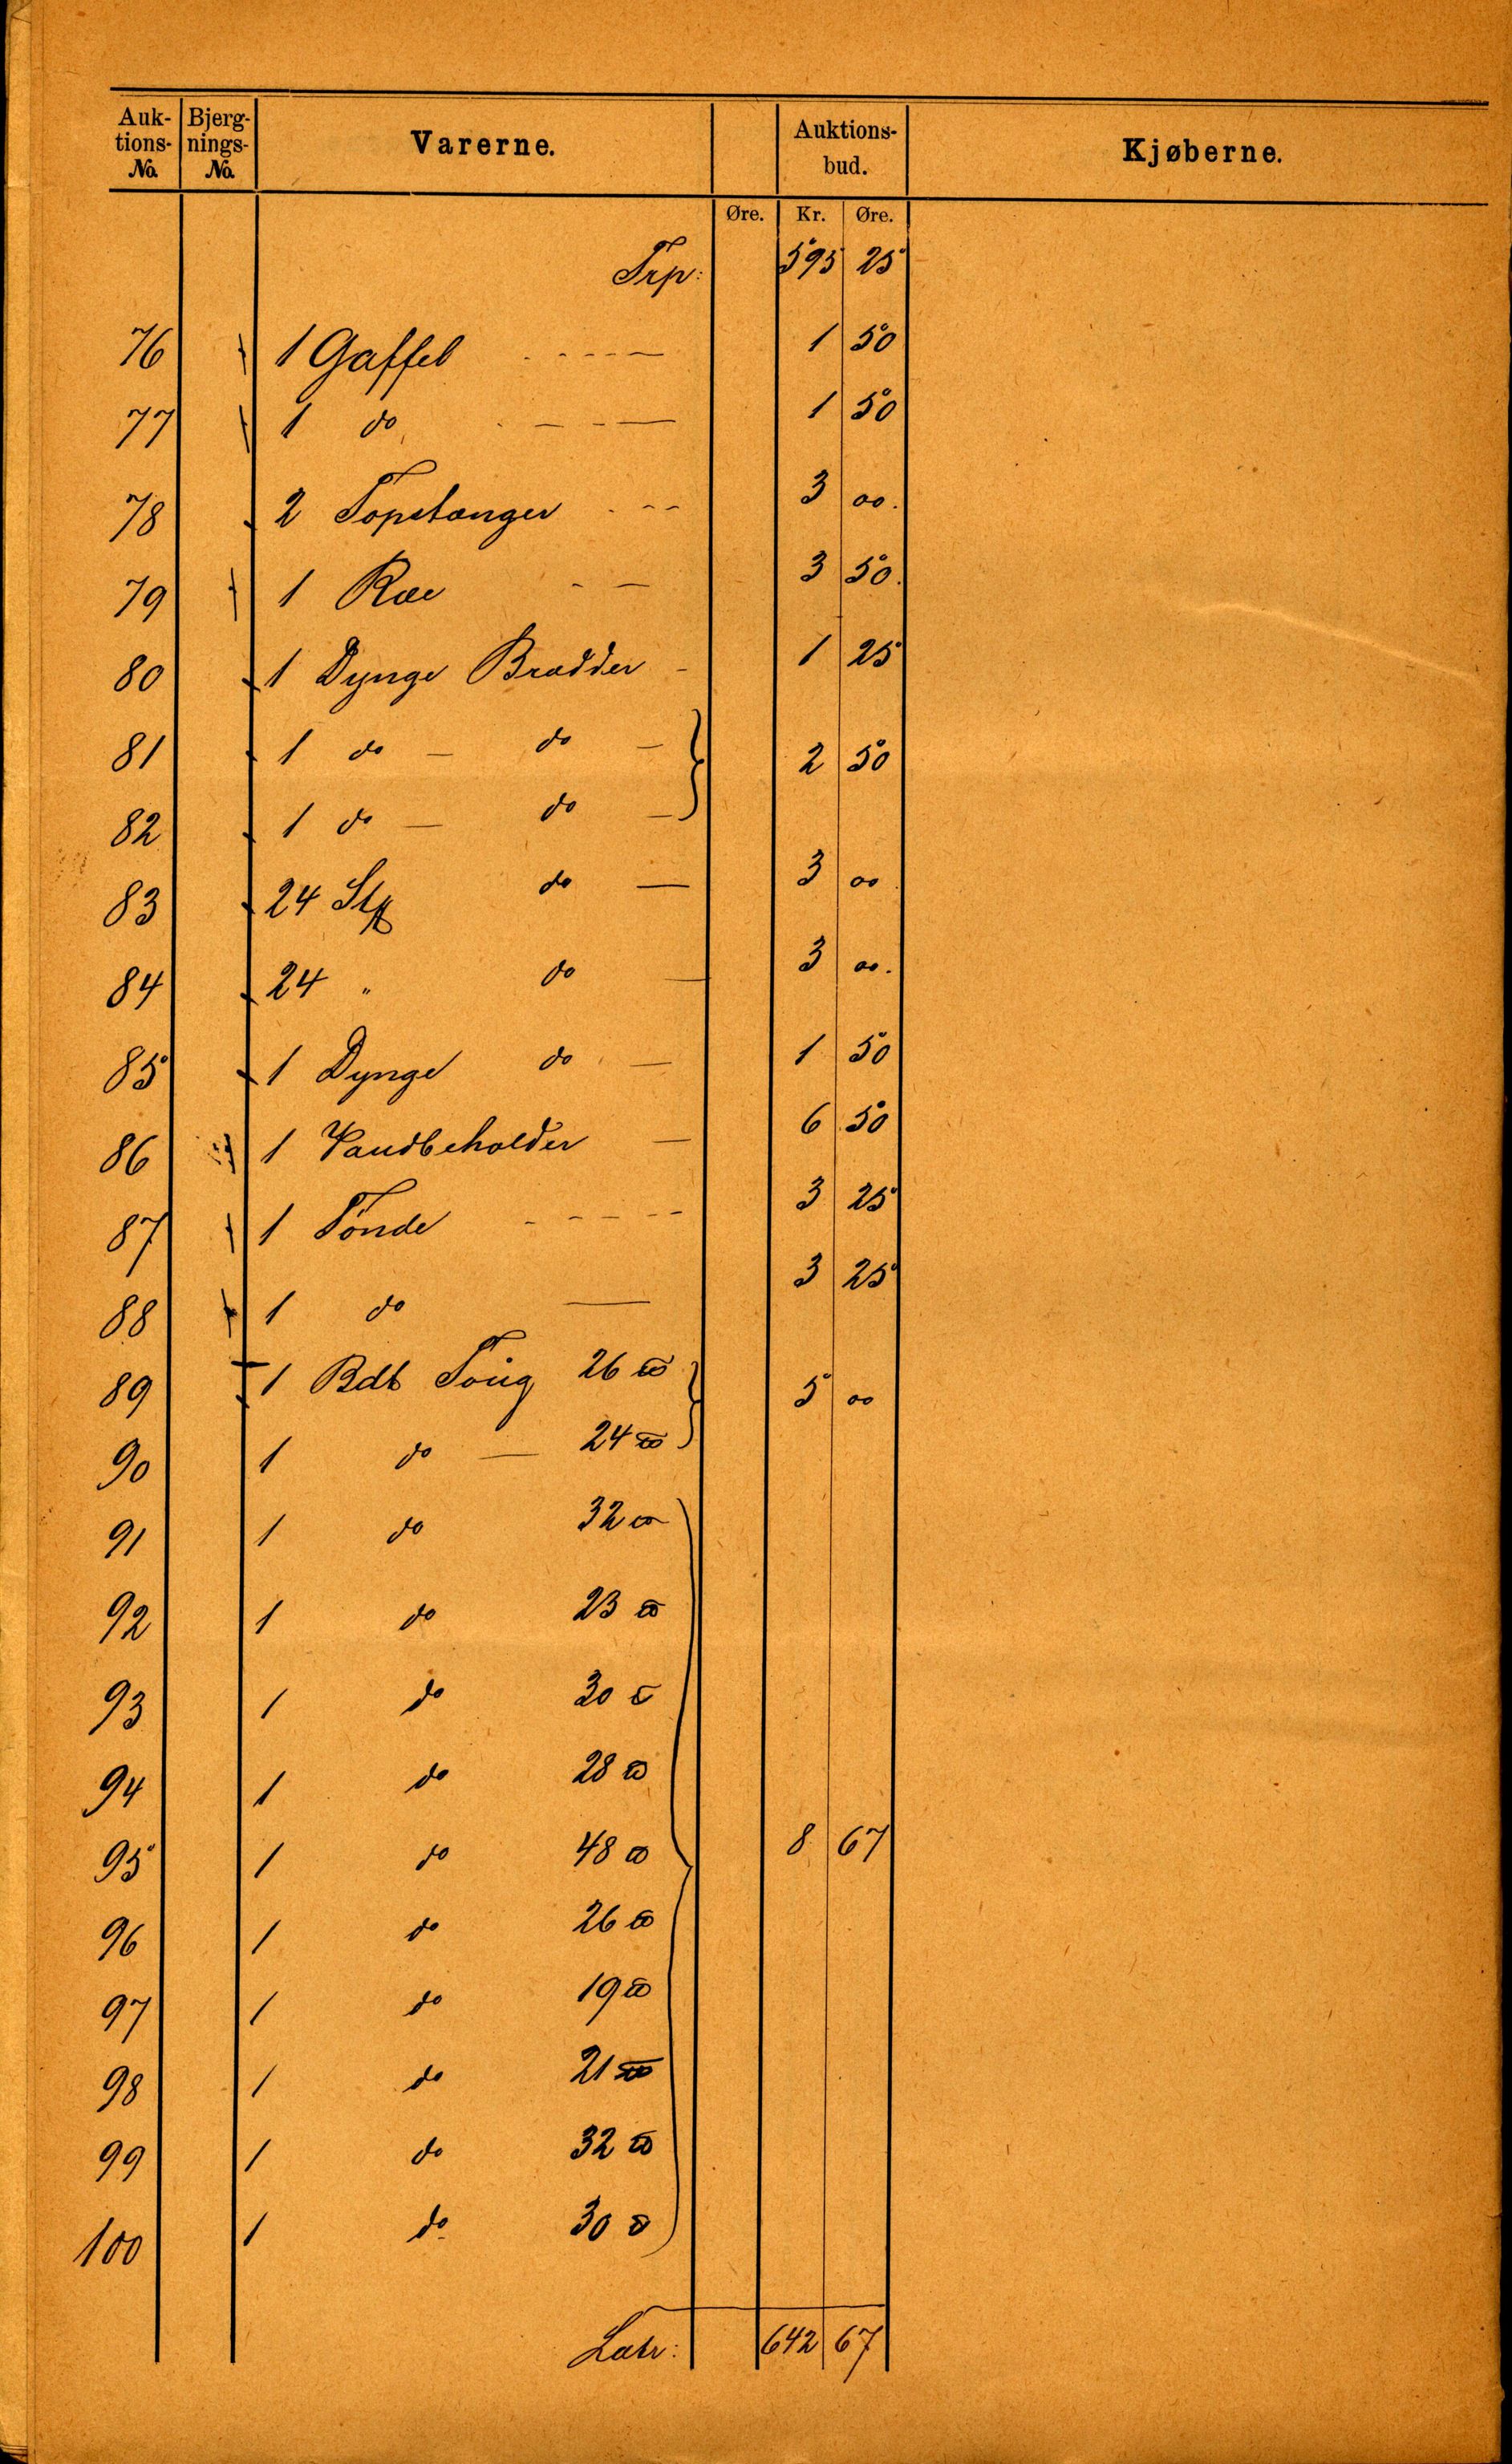 Auk-tions-No. Bjerg-nings-No. Varerne. Auktions-bud. Kjøberne.
Øre. Kr. Øre.
Trp: 595 25
76 1 Gaffel 1 50
77 1 do 1 50
78 2 Topstænger 3 00.
79 1 Rae 3 50.
80 1 Dynge Brædder - 1 25
81 1 do — do — } 2 50
82 1 do — do —
83 24 Stk do — 3 00
84 24 " do — 3 00.
85 1 Dynge do — 1 50
86 1 Vandbeholder — 6 50
87 1 Tønde 3 25
88 1 do — 3 25
89 1 Bdt Toug 26 ℔ } 5 00
90 1 do — 24 ℔
91 1 do 32 ℔
92 1 do 23 ℔
93 1 do 30 ℔
94 1 do 28 ℔
95 1 do 48 ℔ } 8 67
96 1 do 26 ℔
97 1 do 19 ℔
98 1 do 21 ℔
99 1 do 32 ℔
100 1 do 30 ℔
Latr: 642 67